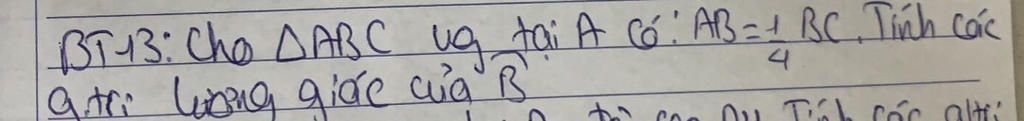 BT13: Cho ΔABC vg tại A có: AB = 1/4 BC. Tính các
g.trị lượng giác của B̂
Tính các g/trị